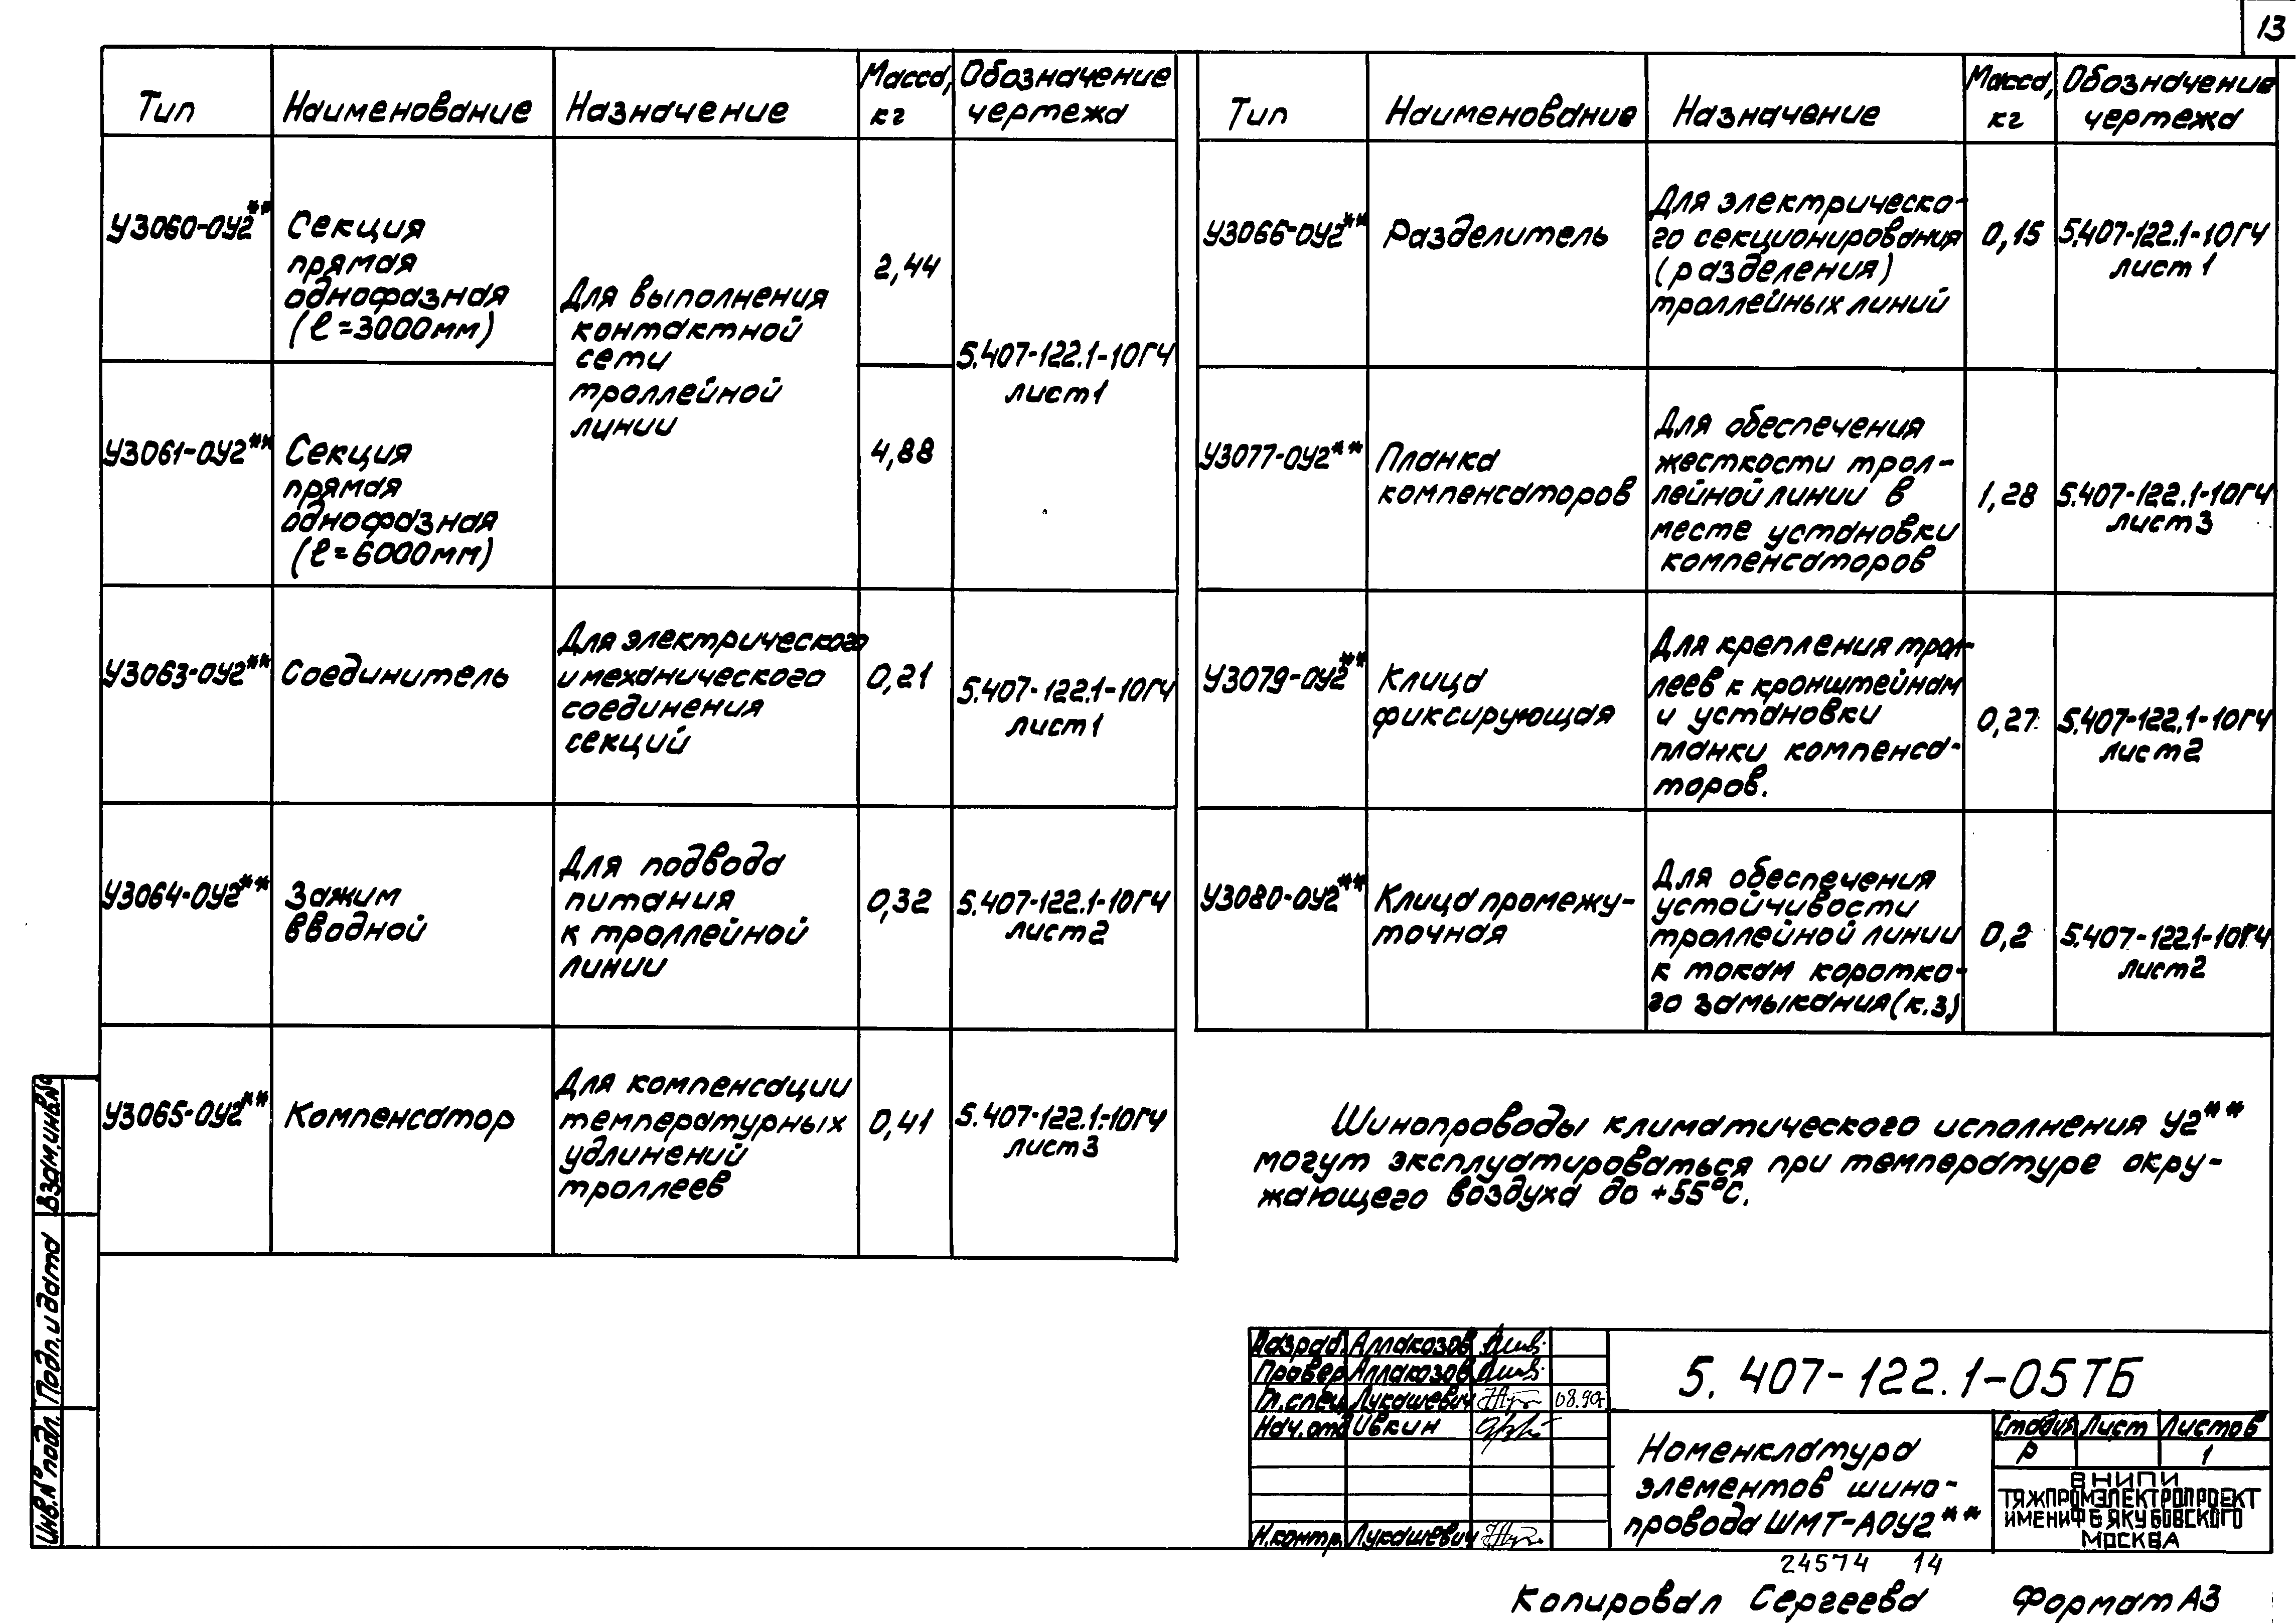 13
Тип
Наименование
Назначение
Масса,
кг
Обозначение
чертежа
У3060-0У2**
Секция
прямая
однофазная
(ℓ=3000мм)
Для выполнения
контактной
сети
троллейной
линии
2,44
5.407-122.1-10ГЧ
лист1
У3061-0У2**
Секция
прямая
однофазная
(ℓ=6000мм)
4,88
У3063-0У2**
Соединитель
Для электрического
и механического
соединения
секций
0,21
5.407-122.1-10ГЧ
лист1
У3064-0У2**
Зажим
вводной
Для подвода
питания
к троллейной
линии
0,32
5.407-122.1-10ГЧ
лист2
У3065-0У2**
Компенсатор
Для компенсации
температурных
удлинений
троллеев
0,41
5.407-122.1-10ГЧ
лист3
Тип
Наименование
Назначение
Масса,
кг
Обозначение
чертежа
У3066-0У2**
Разделитель
Для электрическо-
го секционирования
(разделения)
троллейных линий
0,15
5.407-122.1-10ГЧ
лист 1
У3077-0У2**
Планка
компенсаторов
Для обеспечения
жесткости трол-
лейной линии в
месте установки
компенсаторов
1,28
5.407-122.1-10ГЧ
лист3
У3079-0У2**
Клица
фиксирующая
Для крепления трол-
леев к кронштейнам
и установки
планки компенса-
торов.
0,27
5.407-122.1-10ГЧ
лист2
У3080-0У2**
Клица промежу-
точная
Для обеспечения
устойчивости
троллейной линии
к токам коротко-
го замыкания (к.з.)
0,2
5.407-122.1-10ГЧ
лист2
Шинопроводы климатического исполнения У2**
могут эксплуатироваться при температуре окру-
жающего воздуха до +55°С.
Взам.инв.№
Подп. и дата
Инв.№ подл.
Разраб. Аллакозов
Провер. Аллакозов
Гл.спец. Лукашевич 08.90г
Нач.отд Ивкин
Н.контр. Лукашевич
5.407-122.1-05ТБ
Номенклатура
элементов шино-
провода ШМТ-А0У2**
Стадия Лист Листов
Р 1
ВНИПИ
ТЯЖПРОМЭЛЕКТРОПРОЕКТ
ИМЕНИ Ф Б ЯКУБОВСКОГО
МОСКВА
24574 14
Копировал Сергеева Формат А3